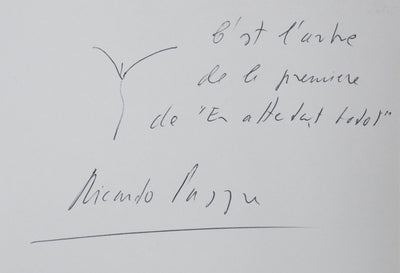 C'est l'arbre
de la première
de "En attendant Godot"
Ricardo